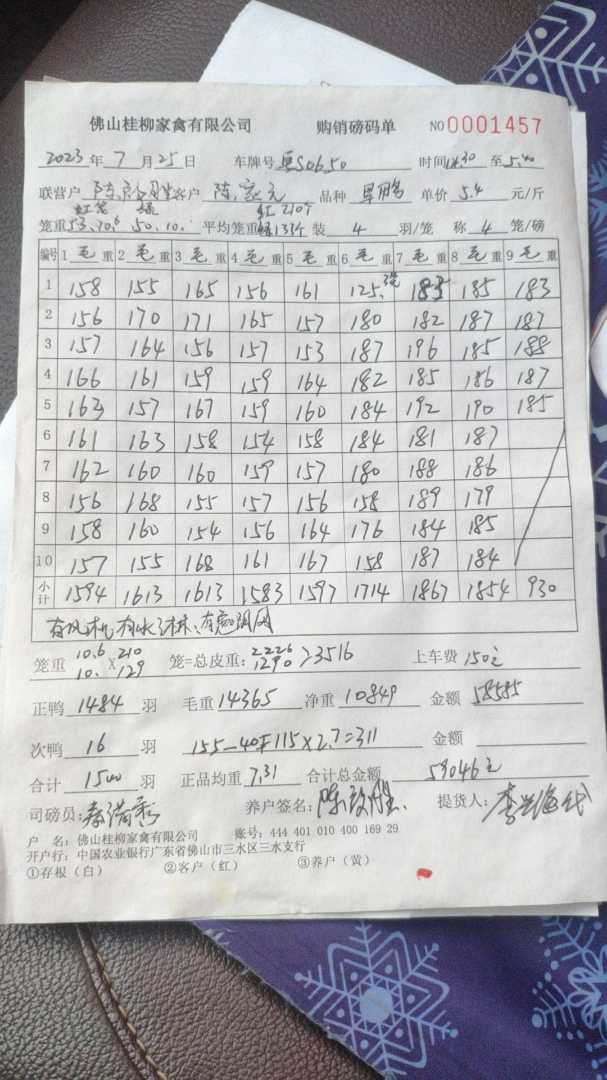 佛山桂柳家禽有限公司 购销磅码单 NO 0001457
2023 年 7 月 25 日 车牌号 S0650 时间 至 5:40
联营户 陈 客户 陈 品种 单价 5.4 元/斤
红 210个
笼重 53. 10.6 50. 10. 平均笼重 133个 装 4 羽/笼 称 4 笼/磅
编号 1 毛重 2 毛重 3 毛重 4 毛重 5 毛重 6 毛重 7 毛重 8 毛重 9 毛重
1 158 155 165 156 161 125. 183 185 183
2 156 170 171 165 157 180 182 187 187
3 157 164 156 157 153 187 196 185 188
4 166 161 159 159 164 182 185 186 187
5 163 157 167 159 160 184 192 190 185
6 161 163 158 154 158 184 181 187
7 162 160 160 159 157 180 188 186
8 156 168 155 157 156 158 189 179
9 158 160 154 156 164 176 184 185
10 157 155 168 161 167 158 187 184
小计 1594 1613 1613 1583 1597 1714 1867 1854 930
笼重 10.6 10. X 210 129 笼=总皮重: 2226 1290 >3516 上车费 150元
正鸭 1484 羽 毛重 14365 净重 10849 金额 58585
次鸭 16 羽 155-40=115×2.7=311 金额
合计 1500 羽 正品均重 7.31 合计总金额 59046元
司磅员: 养户签名: 陈 提货人: 李
户 名: 佛山桂柳家禽有限公司 账号: 444 401 010 400 169 29
开户行: 中国农业银行广东省佛山市三水区三水支行
①存根（白） ②客户（红） ③养户（黄）